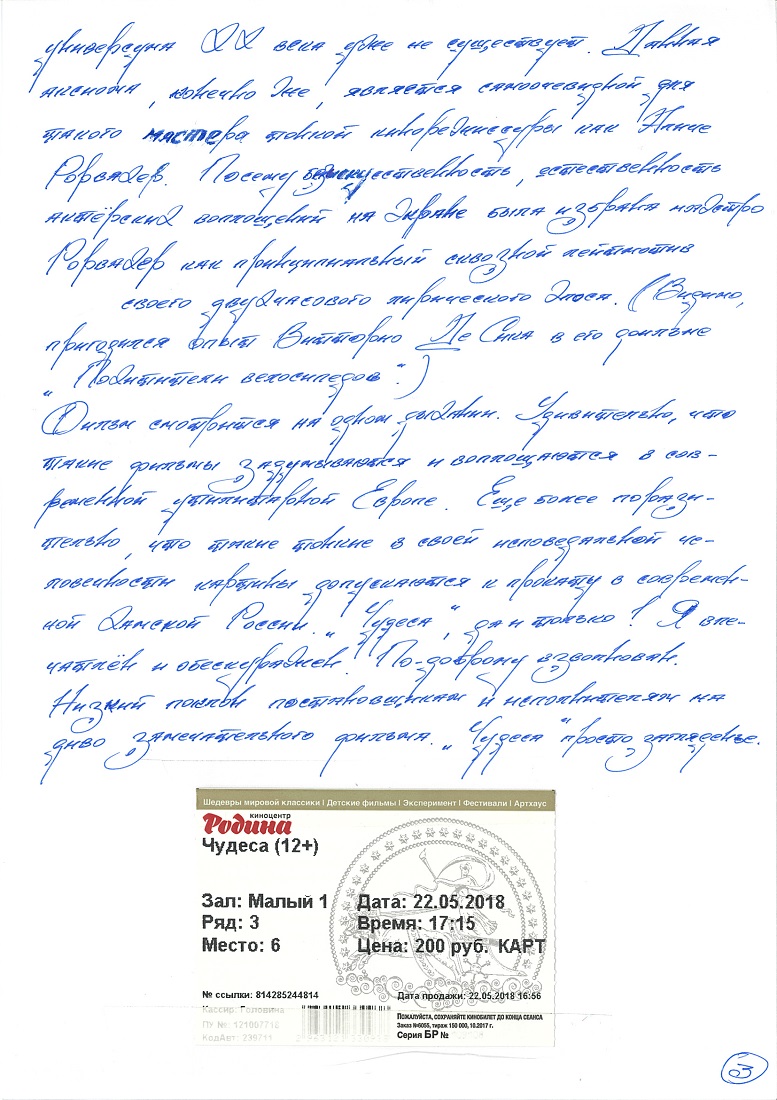 универсума XX века уже не существует. Данная
аксиома, конечно же, является самоочевидной для
такого мастера тонкой кинорежиссуры как Аличе
Рорвахер. Посему безыскусственность, естественность
актёрских воплощений на экране была избрана маэстро
Рорвахер как принципиальный сквозной лейтмотив
своего двухчасового лирического эпоса. (Видимо,
пригодился опыт Витторио Де Сика в его фильме
„Похитители велосипедов“.)
Фильм смотрится на одном дыхании. Удивительно, что
такие фильмы задумываются и воплощаются в сов-
ременной утилитарной Европе. Еще более порази-
тельно, что такие тонкие в своей исповедальной че-
ловечности картины допускаются к прокату в современ-
ной хамской России. „Чудеса“, да и только! Я впе-
чатлён и обескуражен. По-доброму взволнован.
Низкий поклон постановщикам и исполнителям на
диво замечательного фильма. „Чудеса“ просто загляденье.
Шедевры мировой классики | Детские фильмы | Эксперимент | Фестивали | Артхаус
киноцентр
Родина
Чудеса (12+)
Зал: Малый 1 Дата: 22.05.2018
Ряд: 3 Время: 17:15
Место: 6 Цена: 200 руб. КАРТ
№ ссылки: 814285244814 Дата продажи: 22.05.2018 16:56
Кассир: Головина
ПУ №: 121007718
КодАвт: 239711
ПОЖАЛУЙСТА, СОХРАНЯЙТЕ КИНОБИЛЕТ ДО КОНЦА СЕАНСА
Заказ №6055, тираж 150 000, 10.2017 г.
Серия БР №
3